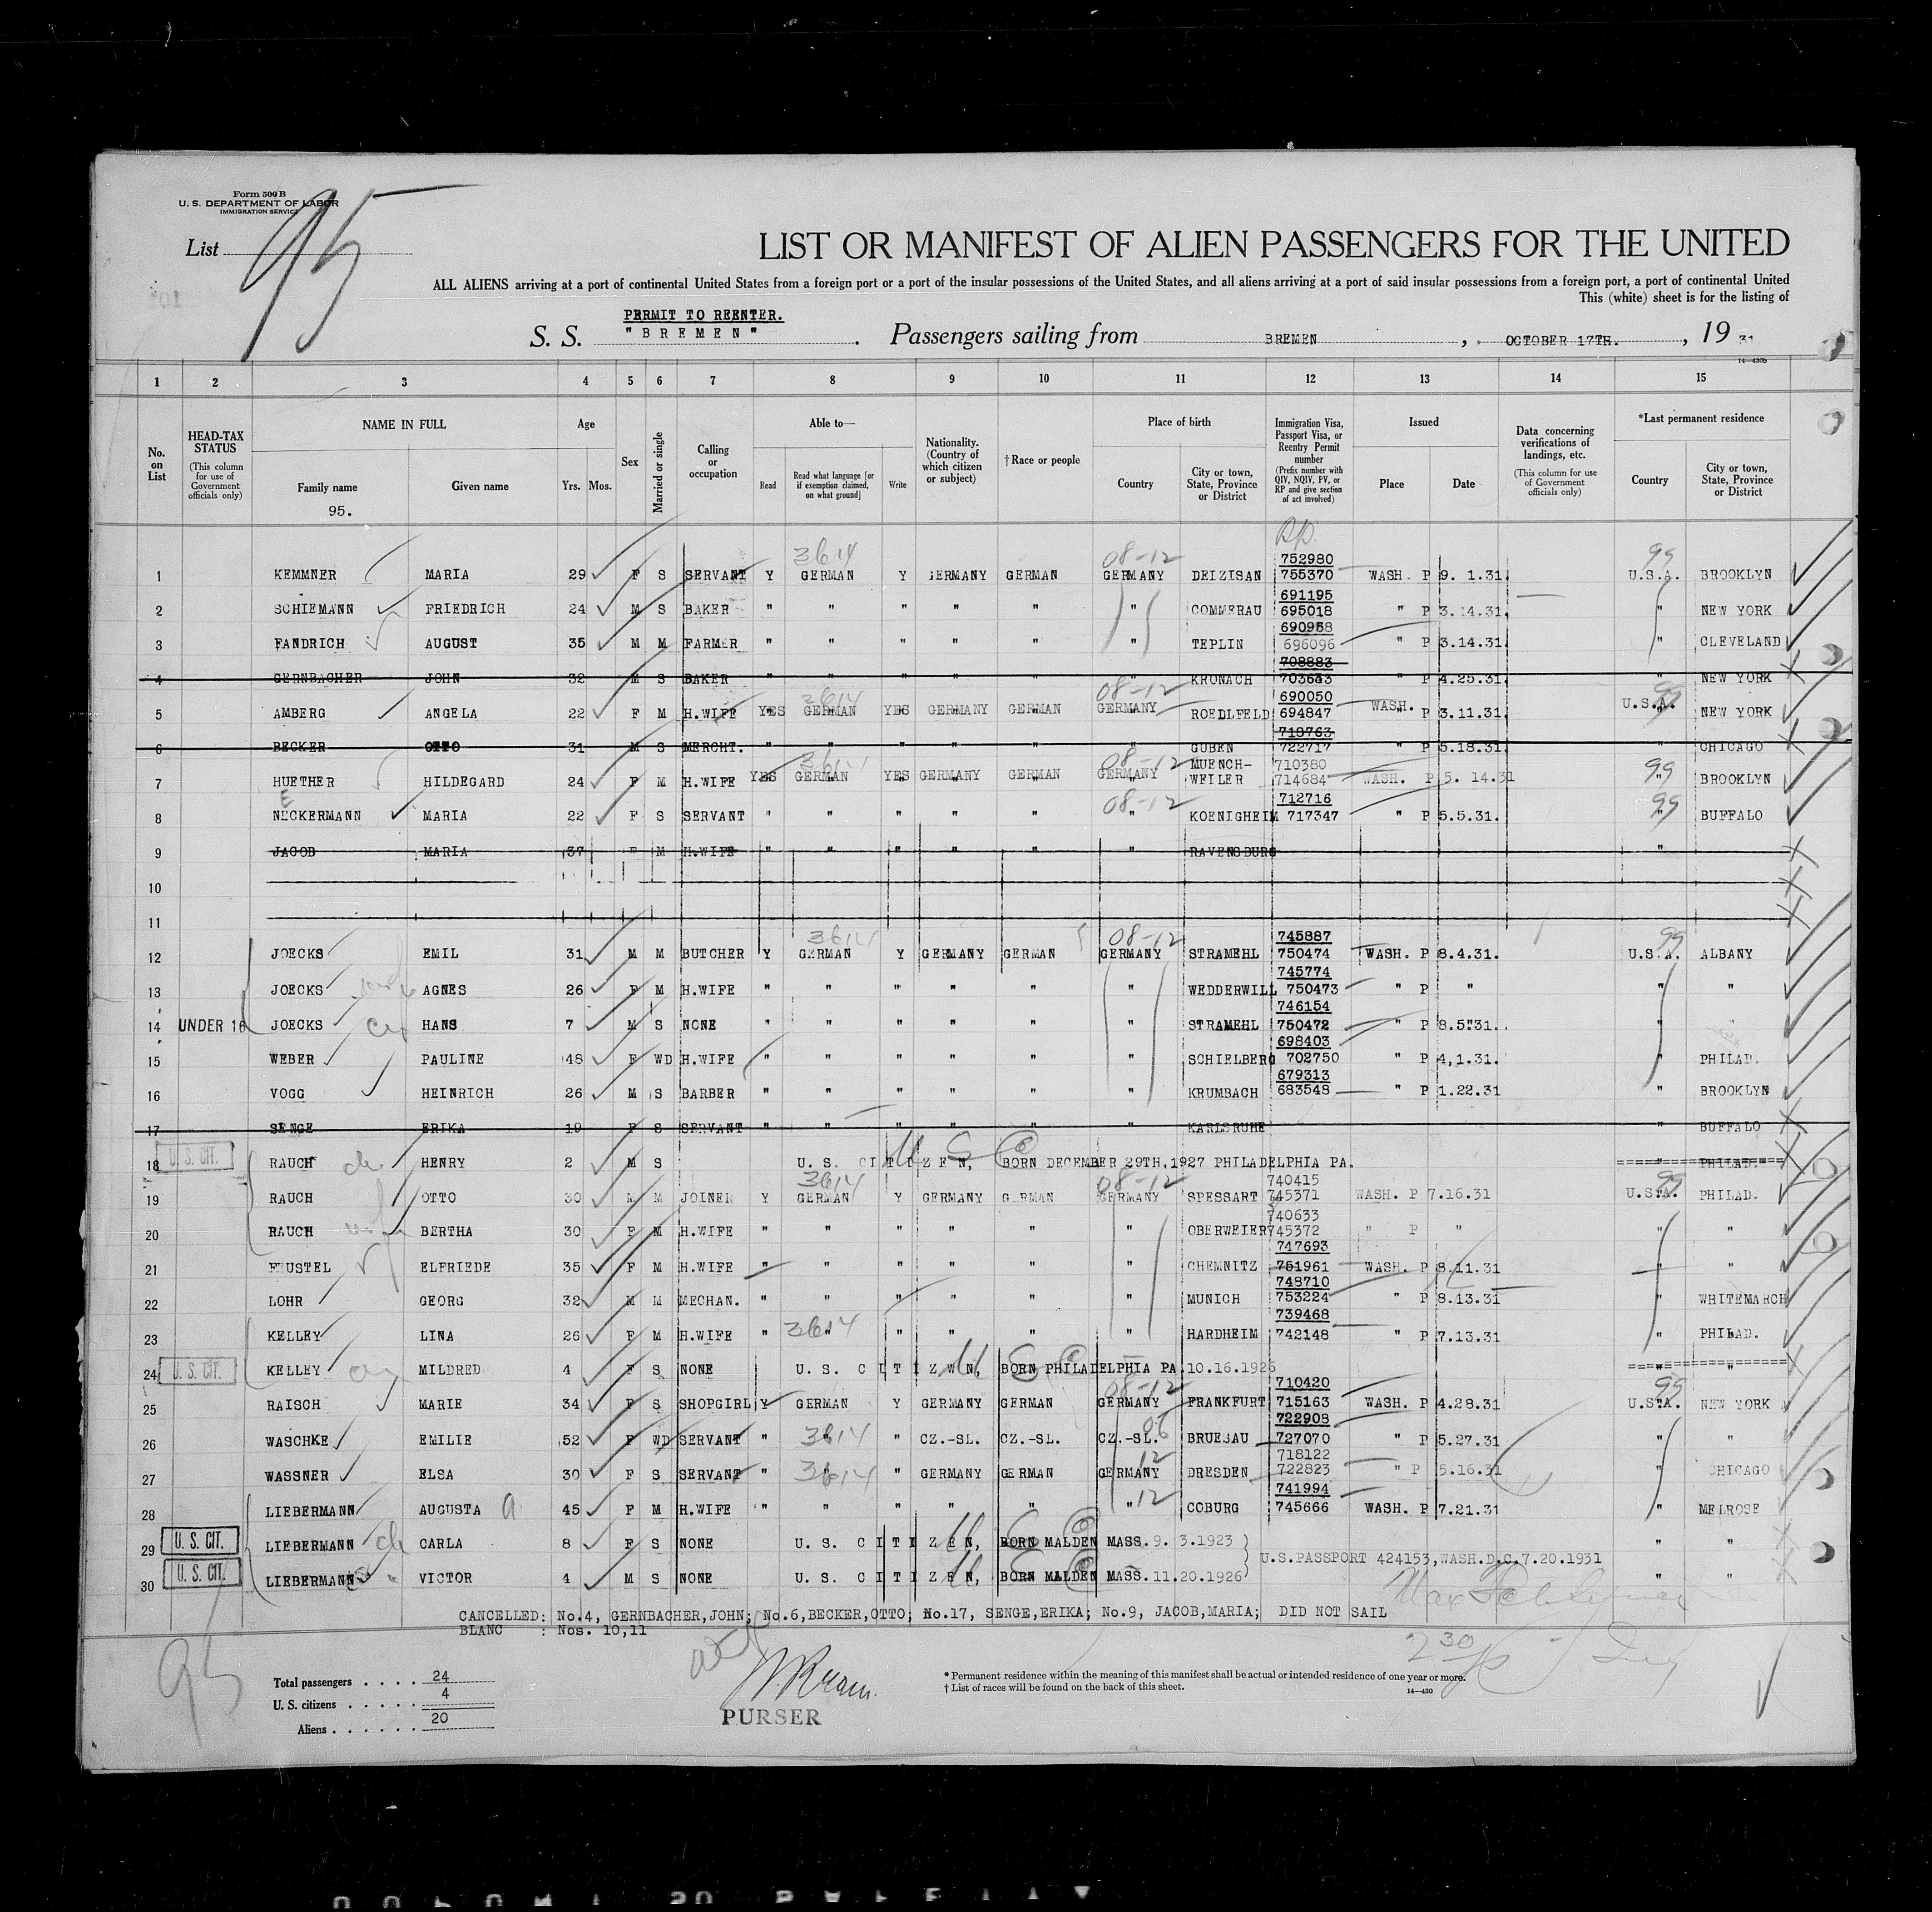 Form 500 B
U. S. DEPARTMENT OF LABOR
IMMIGRATION SERVICE
List 95
LIST OR MANIFEST OF ALIEN PASSENGERS FOR THE UNITED
ALL ALIENS arriving at a port of continental United States from a foreign port or a port of the insular possessions of the United States, and all aliens arriving at a port of said insular possessions from a foreign port, a port of continental United
This (white) sheet is for the listing of
PERMIT TO REENTER.
S. S. "BREMEN". Passengers sailing from BREMEN, OCTOBER 17TH., 19 31
14—430b
1 2 3 4 5 6 7 8 9 10 11 12 13 14 15
No. on List
HEAD-TAX STATUS (This column for use of Government officials only)
NAME IN FULL Family name Given name
95.
Age Yrs. Mos.
Sex
Married or single
Calling or occupation
Able to— Read Read what language [or if exemption claimed, on what ground] Write
Nationality. (Country of which citizen or subject)
†Race or people
Place of birth Country City or town, State, Province or District
Immigration Visa, Passport Visa, or Reentry Permit number (Prefix number with QIV, NQIV, PV, or RP and give section of act involved)
Issued Place Date
Data concerning verifications of landings, etc. (This column for use of Government officials only)
*Last permanent residence Country City or town, State, Province or District
3614 08-12 752980 99
1 KEMMNER MARIA 29 F S SERVANT Y GERMAN Y GERMANY GERMAN GERMANY DEIZISAN 755370 WASH. P 9. 1.31. U.S.A. BROOKLYN
691195
2 SCHIEMANN FRIEDRICH 24 M S BAKER " " " " " " COMMERAU 695018 " P 3.14.31. " NEW YORK
690958
3 FANDRICH AUGUST 35 M M FARMER " " " " " " TEPLIN 696096 " P 3.14.31. " CLEVELAND
708883
4 GERNBACHER JOHN 32 M S BAKER " " " " " " KRONACH 703633 " P 4.25.31. " NEW YORK
3614 08-12 690050 99
5 AMBERG ANGELA 22 F M H.WIFE YES GERMAN YES GERMANY GERMAN GERMANY ROEDLFELD 694847 WASH. P 3.11.31. U.S.A. NEW YORK
718763
6 BECKER OTTO 31 M S MERCHT. " " " " " " GUBEN 722717 " P 5.18.31. " CHICAGO
3614 08-12 MUENCH- 710380 99
7 HUETHER HILDEGARD 24 F M H.WIFE YES GERMAN YES GERMANY GERMAN GERMANY WEILER 714684 WASH. P 5. 14.31 " BROOKLYN
E 08-12 712716 99
8 NECKERMANN MARIA 22 F S SERVANT " " " " " " KOENIGHEIM 717347 " P 5.5.31. " BUFFALO
9 JACOB MARIA 37 F M H.WIFE " " " " " " RAVENSBURG "
10
11
3614 08-12 745887 99
12 JOECKS EMIL 31 M M BUTCHER Y GERMAN Y GERMANY GERMAN GERMANY STRAMEHL 750474 WASH. P 8.4.31. U.S.A. ALBANY
745774
13 JOECKS wife AGNES 26 F M H.WIFE " " " " " " WEDDERWILL 750473 " P " " "
746154
14 UNDER 16 JOECKS ch HANS 7 M S NONE " " " " " " STRAMEHL 750472 " P 8.5.31. " "
698403
15 WEBER PAULINE 48 F WD H.WIFE " " " " " " SCHIELBERG 702750 " P 4,1.31. " PHILAD.
679313
16 VOGG HEINRICH 26 M S BARBER " " " " " " KRUMBACH 683548 " P 1.22.31 " BROOKLYN
17 SENGE ERIKA 19 F S SERVANT " " " " " " KARLSRUHE " BUFFALO
U S C
18 U. S. CIT. RAUCH ch HENRY 2 M S U. S. CITIZEN, BORN DECEMBER 29TH.1927 PHILADELPHIA PA. " PHILAD.
3614 08-12 740415 99
19 RAUCH OTTO 30 M M JOINER Y GERMAN Y GERMANY GERMAN GERMANY SPESSART 745371 WASH. P 7.16.31 U.S.A. PHILAD.
740633
20 RAUCH BERTHA 30 F M H.WIFE " " " " " " OBERWEIER 745372 " P " " "
747693
21 FEUSTEL ELFRIEDE 35 F M H.WIFE " " " " " " CHEMNITZ 751961 WASH. P 8.11.31 " "
748710
22 LOHR GEORG 32 M M MECHAN. " " " " " " MUNICH 753224 " P 8.13.31 " WHITEMARCH
739468
23 KELLEY LINA 26 F M H.WIFE " 3614 " " " " HARDHEIM 742148 " P 7.13.31 " PHILAD.
24 U. S. CIT. KELLEY MILDRED 4 F S NONE U. S. CITIZWN, BORN PHILADELPHIA PA. 10.16.1926 " "
08-12 710420 99
25 RAISCH MARIE 34 F S SHOPGIRL Y GERMAN Y GERMANY GERMAN GERMANY FRANKFURT 715163 WASH. P 4.28.31 U.S.A. NEW YORK
722908
26 WASCHKE EMILIE 52 F WD SERVANT " 3614 " CZ.-SL. CZ.-SL. CZ.-SL. BRUESAU 727070 " P 5.27.31 "
12 718122
27 WASSNER ELSA 30 F S SERVANT " 3614 " GERMANY GERMAN GERMANY DRESDEN 722823 " P 5.16.31 " CHICAGO
741994
28 LIEBERMANN AUGUSTA 45 F M H.WIFE " " " " " " 12 COBURG 745666 WASH. P 7.21.31 " MELROSE
29 U. S. CIT. LIEBERMANN ch CARLA 8 F S NONE U. S. CITIZEN, BORN MALDEN MASS. 9. 3.1923 " "
U.S.PASSPORT 424153,WASH.D.C.7.20.1931
30 U. S. CIT. LIEBERMANN VICTOR 4 M S NONE U. S. CITIZEN, BORN MALDEN MASS. 11.20.1926 " "
CANCELLED: No.4, GERNBACHER,JOHN; No.6,BECKER,OTTO; No.17, SENGE,ERIKA; No.9, JACOB,MARIA; DID NOT SAIL
BLANC : Nos. 10,11
95
Total passengers . . . . 24
U. S. citizens . . . . . . 4
Aliens . . . . . . 20
PURSER
* Permanent residence within the meaning of this manifest shall be actual or intended residence of one year or more.
† List of races will be found on the back of this sheet.
14—430